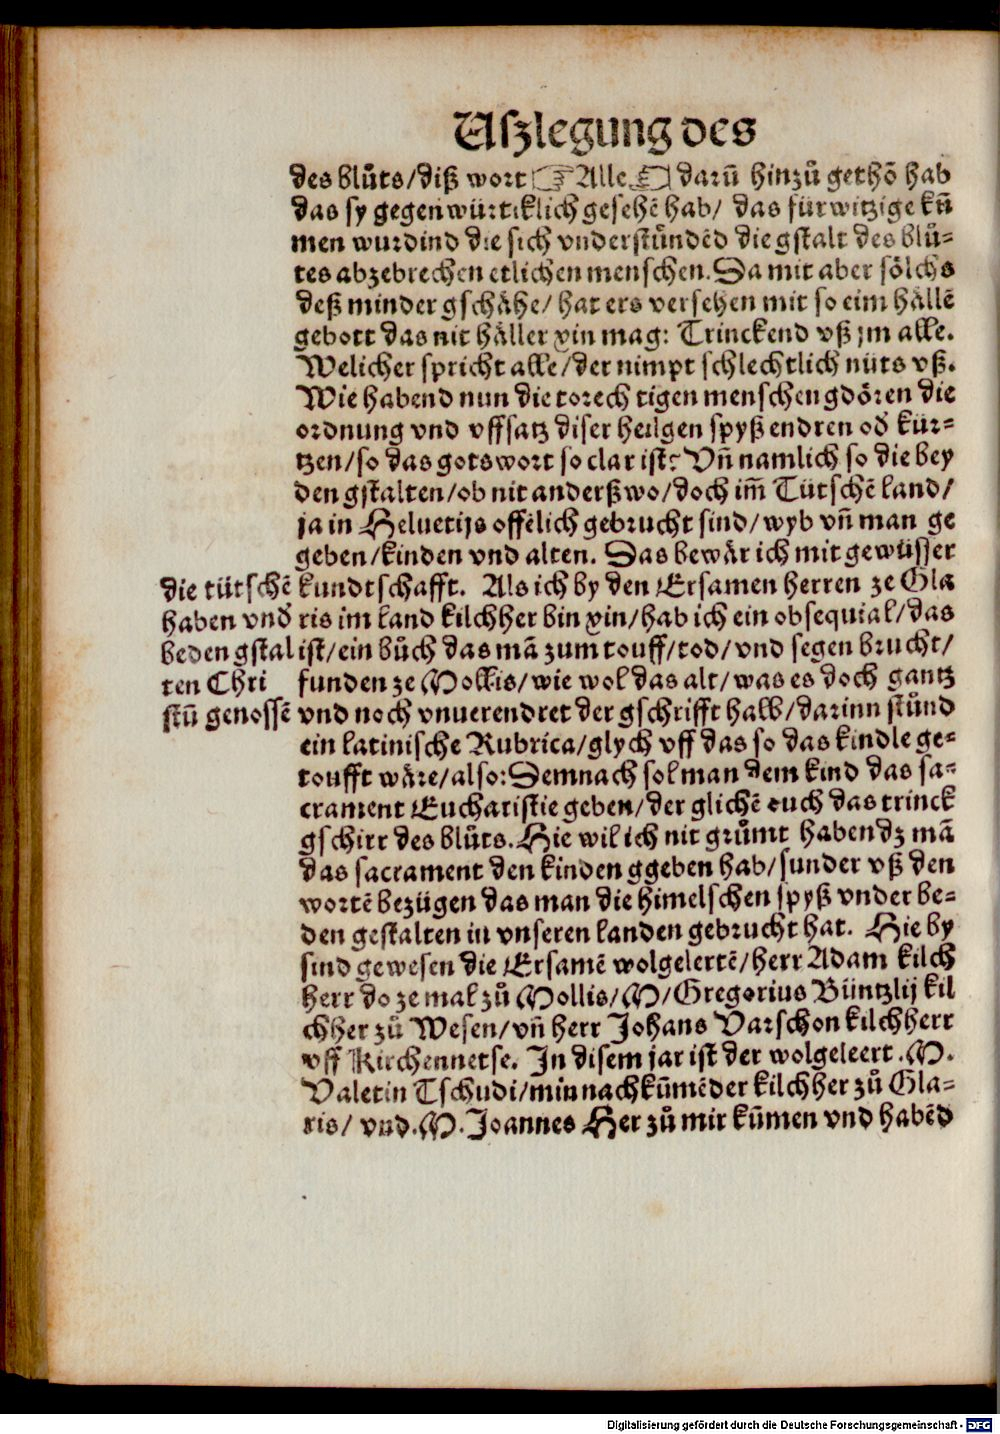 Uſzlegung des
des blůts/diß wort ☞Alle☜ darū hinzů gethō hab
das sy gegenwürtiklich gesehē hab/ das fürwitzige kū
men wurdind die sich vnderstůndēd die gstalt des blů⸗
tes abzebrechen etlichen menschen. Da mit aber sölchs
deß minder gschähe/ hat ers versehen mit so eim hällē
gebott das nit häller xin mag: Trinckend vß jm alle.
Welicher spricht alle/der nimpt schlechtlich nüts vß.
Wie habend nun die torechtigen menschen gdören die
ordnung vnd vffsatz diser heilgen spyß endren od̕ kür⸗
tzen/so das gots wort so clar ist? Vñ namlich so die bey
den gstalten/ob nit anderßwo/doch im̃ Tütschē land/
ja in Heluetijs offēlich gebrucht sind/wyb vñ man ge
geben/kinden vnd alten. Das bewär ich mit gewüsser
die tütschē kundtschafft. Als ich by den Ersamen herren ze Gla
haben vnd̕ ris im land kilchher bin xin/hab ich ein obsequial/das
beden gstal ist/ein bůch das mā zum touff/tod/vnd segen brucht/
ten Chri funden ze Mollis/wie wol das alt/was es doch gantz
stū genossē vnd noch vnuerendret der gschrifft halb/darinn stůnd
ein latinische Rubrica/glych vff das so das kindle ge⸗
toufft wäre/also: Demnach sol man dem kind das sa⸗
crament Eucharistie geben/der glichē ouch das trinck
gschirr des blůts. Hie wil ich nit grůmt haben dz mā
das sacrament den kinden ggeben hab/sunder vß den
wortē bezügen das man die himelschen spyß vnder be⸗
den gestalten in vnseren landen gebrucht hat. Hie by
sind gewesen die Ersamē wolgelertē/herr Adam kilch
herr do ze mal zů Mollis/M/Gregorius Büntzlij kil
chher zů Wesen/vñ herr Johans Varschon kilchherr
vff Kirchennetse. In disem jar ist der wolgeleert .M.
Valetin Tschudi/min nachkūmēder kilchher zů Gla⸗
ris/ vnd .M. Joannes Her zů mir kūmen vnd habēd
Digitalisierung gefördert durch die Deutsche Forschungsgemeinschaft - DFG